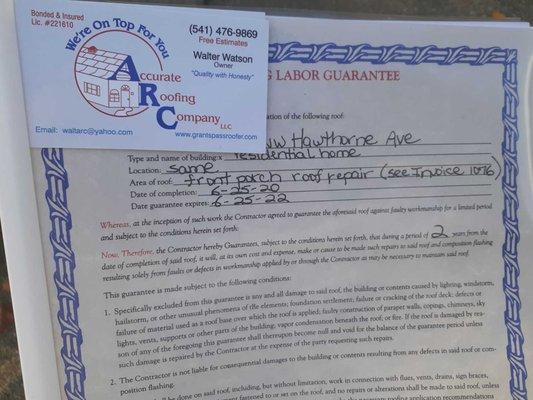 Bonded & Insured
Lic. #221610
We're On Top For You
Accurate
Roofing
Company LLC
(541) 476-9869
Free Estimates
Walter Watson
Owner
"Quality with Honesty"
Email: waltarc@yahoo.com
www.grantspassroofer.com
LABOR GUARANTEE
of the following roof:
Hawthorne Ave
Type and name of building: residential home
Location: same
Area of roof: front porch roof repair (see Invoice 1076)
Date of completion: 6-25-20
Date guarantee expires: 6-25-22
Whereas, at the inception of such work the Contractor agreed to guarantee the aforesaid roof against faulty workmanship for a limited period
and subject to the conditions herein set forth:
Now, Therefore, the Contractor hereby Guarantees, subject to the conditions herein set forth, that during a period of 2 years from the
date of completion of said roof, it will, at its own cost and expense, make or cause to be made such repairs to said roof and composition flashing
resulting solely from faults or defects in workmanship applied by or through the Contractor as may be necessary to maintain said roof.
This guarantee is made subject to the following conditions:
1. Specifically excluded from this guarantee is any and all damage to said roof, the building or contents caused by lighting, windstorm,
hailstorm, or other unusual phenomena of the elements; foundation settlement; failure or cracking of the roof deck; defects or
failure of material used as a roof base over which the roof is applied; faulty construction of parapet walls, copings, chimneys, sky
lights, vents, supports or other parts of the building; vapor condensation beneath the roof; or fire. If the roof is damaged by rea-
son of any of the foregoing this guarantee shall thereupon become null and void for the balance of the guarantee period unless
such damage is repaired by the Contractor at the expense of the party requesting such repairs.
2. The Contractor is not liable for consequential damages to the building or contents resulting from any defects in said roof or com-
position flashing.
shall be done on said roof, including, but without limitation, work in connection with flues, vents, drains, sign braces,
fastened to or set on the roof, and no repairs or alterations shall be made to said roof, unless
necessary roofing application recommendations